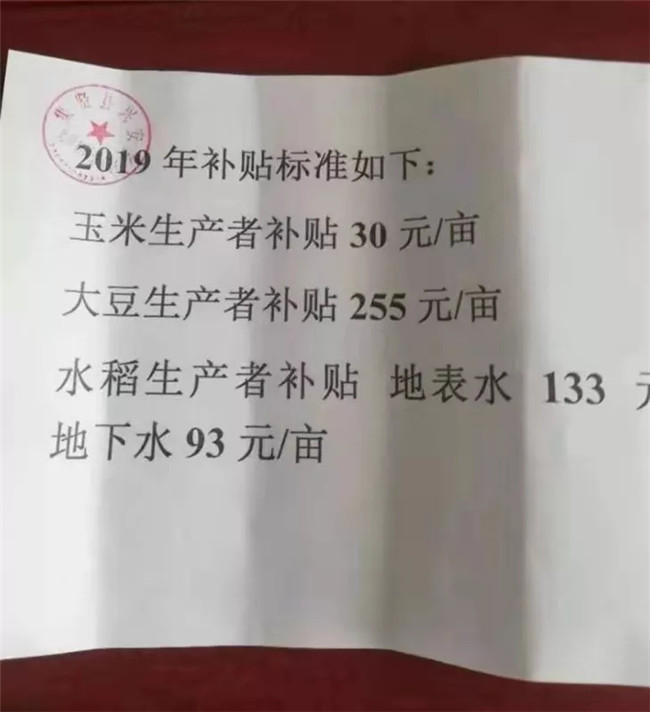 集贤县兴
2019 年补贴标准如下：
玉米生产者补贴 30 元/亩
大豆生产者补贴 255 元/亩
水稻生产者补贴 地表水 133 元
地下水 93 元/亩